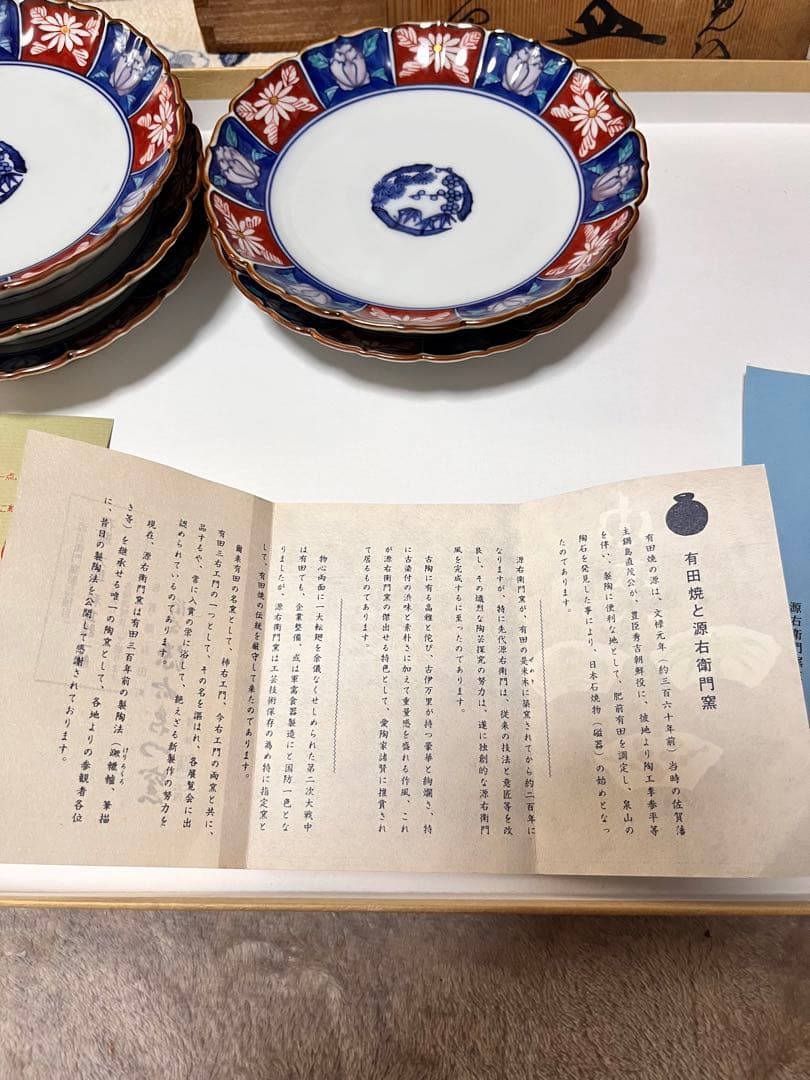 有田焼と源右衛門窯
有田焼の源は、文禄元年（約三百六十年前）当時の佐賀藩
主鍋島直茂公が、豊臣秀吉朝鮮役に、彼地より陶工李参平等
を伴い、製陶に便利な地として、肥前有田を調定し、泉山の
陶石を発見した事により、日本石焼物（磁器）の始めとなっ
たのであります。
源右衛門窯が、有田の是米木に築窯されてから約二百年に
なりますが、特に先代源右衛門は、従来の技法と意匠等を改
良し、その熾烈な陶芸探究の努力は、遂に独創的な源右衛門
風を完成するに至ったのであります。
古陶に有る高雅と侘び、古伊万里が持つ豪華と絢爛さ、特
に古染付の渋味と素朴さに加えて重量感を盛れる作風、これ
が源右衛門窯の傑出せる特色として、愛陶家諸賢に推賞され
て居るものであります。
物心両面に一大転廻を余儀なくせしめられた第二次大戦中
は有田でも、企業整備、或は軍需食器製造にと国防一色とな
りましたが、源右衛門窯は工芸技術保存の為め特に指定窯と
して、有田焼の伝統を厳守して来たのであります。
爾来有田の名窯として、柿右エ門、今右エ門の両窯と共に、
有田三右エ門の一つとして、その名を謳はれ、各展覧会に出
品するや、常に入賞の栄に浴して、絶えざる新製作の努力を
認められているのであります。
現在、源右衛門窯は有田三百年前の製陶法（蹴轆轤、筆描
けりろくろ
き等）を継承せる唯一の陶窯として、各地よりの参観者各位
に、昔日の製陶法を公開して感謝されております。
源右衛門窯
一点